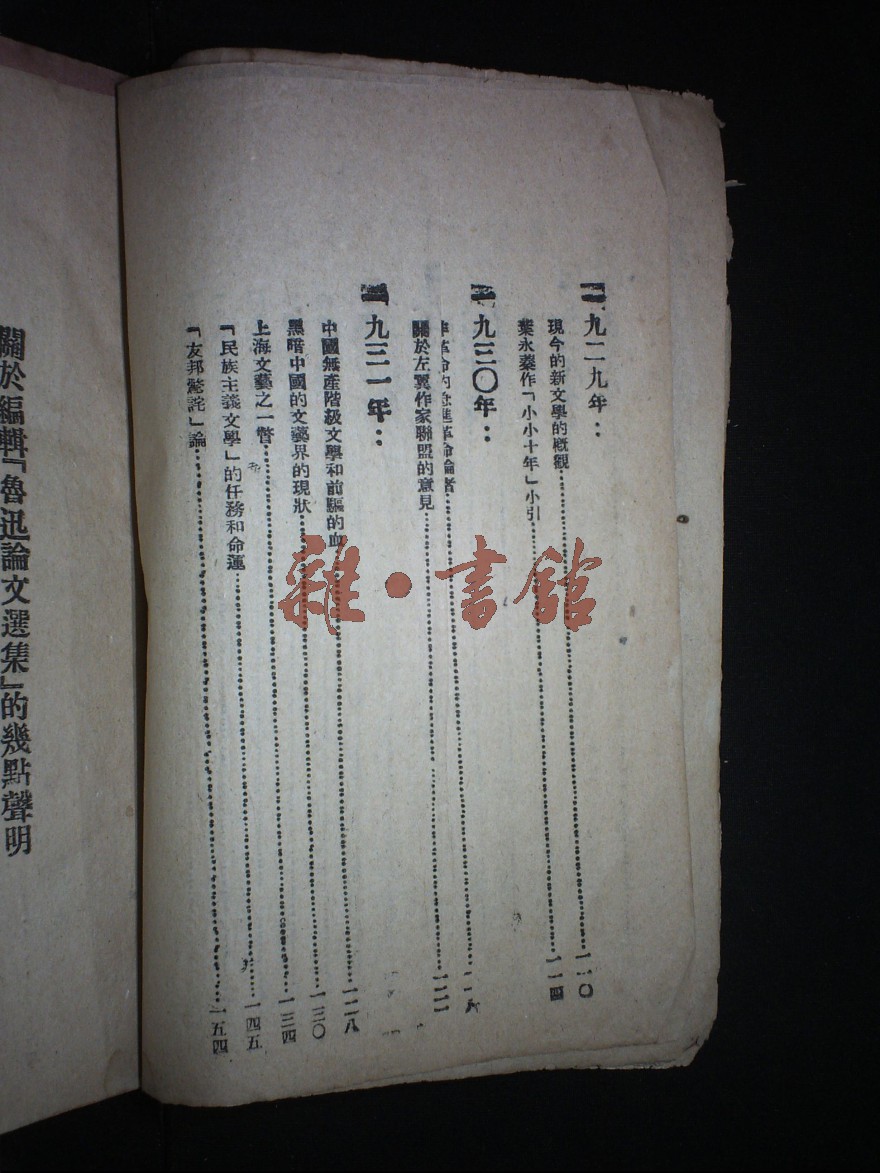 一九二九年：
現今的新文學的概觀……一一〇
葉永蓁作「小小十年」小引……一一四
一九三〇年：
非革命的急進革命論者……一一八
關於左翼作家聯盟的意見……一二一
一九三一年：
中國無產階級文學和前驅的血……一二八
黑暗中國的文藝界的現狀……一三〇
上海文藝之一瞥……一三四
「民族主義文學」的任務和命運……一四五
「友邦驚詫」論……一五四
關於編輯「魯迅論文選集」的幾點聲明
雜·書館